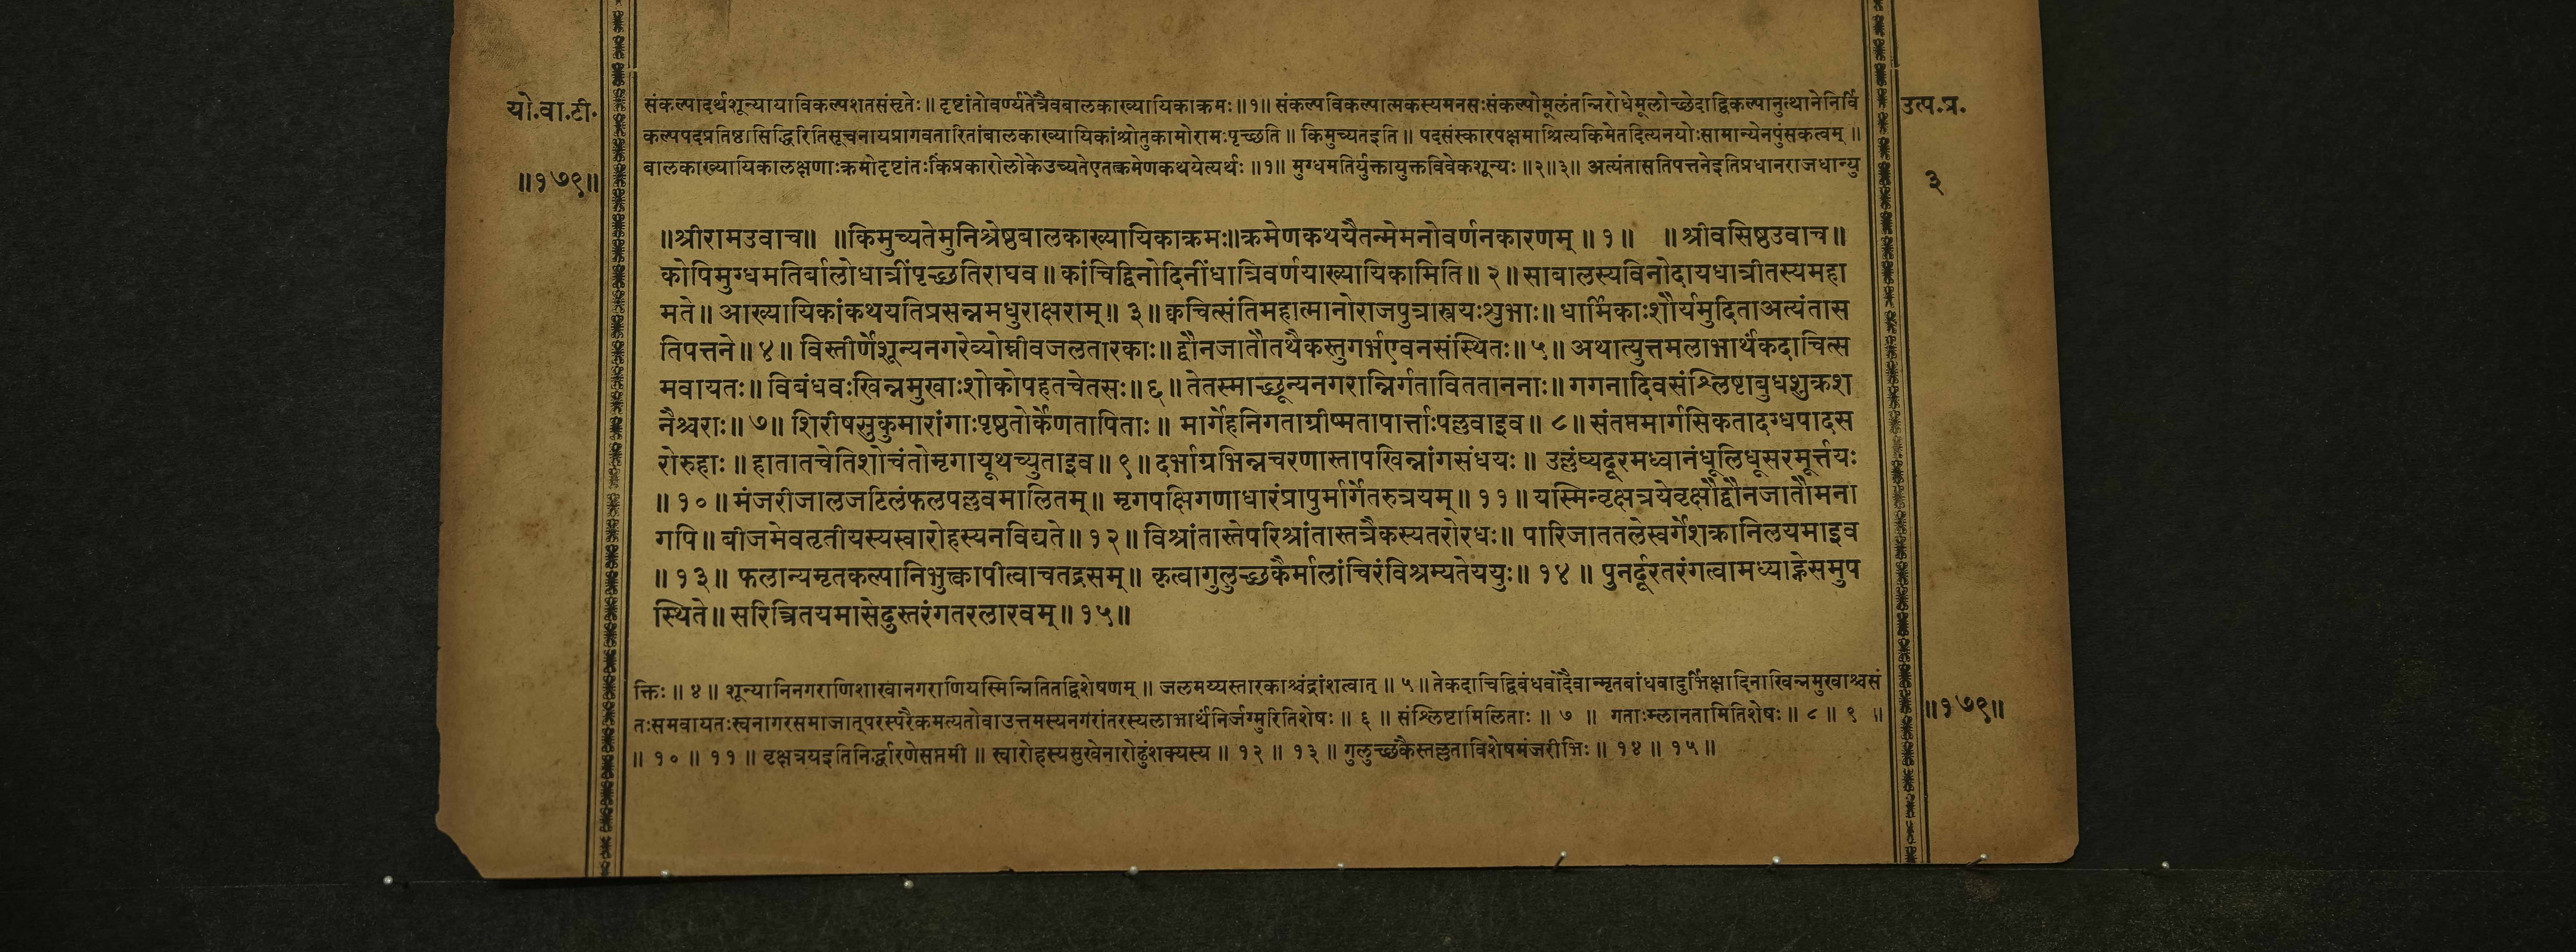 यो.वा.टी.
॥१७९॥
संकल्पादर्थशून्यायाविकल्पशतसंसृतेः ॥ दृष्टांतोवर्ण्यतेत्रैवबालकाख्यायिकाक्रमः ॥१॥ संकल्पविकल्पात्मकस्यमनसःसंकल्पोमूलंतन्निरोधेमूलोच्छेदाद्विकल्पानुत्थानेनिर्वि
कल्पपदप्रतिष्ठासिद्धिरितिसूचनायप्रागवतारितांबालकाख्यायिकांश्रोतुकामोरामःपृच्छति ॥ किमुच्यतइति ॥ पदसंस्कारपक्षमाश्रित्यकिमेतदित्यनयोःसामान्येनपुंसकत्वम् ॥
बालकाख्यायिकालक्षणाःक्रमोदृष्टांतःकिंप्रकारोलोकेउच्यतेएतत्क्रमेणकथयेत्यर्थः ॥१॥ मुग्धमतिर्युक्तायुक्तविवेकशून्यः ॥२॥३॥ अत्यंतासतिपत्तनेइतिप्रधानराजधान्यु
उत्प.प्र.
३
॥श्रीरामउवाच॥ ॥किमुच्यतेमुनिश्रेष्ठबालकाख्यायिकाक्रमः॥क्रमेणकथयैतन्मेमनोवर्णनकारणम् ॥ १ ॥ ॥ श्रीवसिष्ठउवाच॥
कोपिमुग्धमतिर्बालोधात्रींपृच्छतिराघव ॥ कांचिद्विनोदिनींधात्रिवर्णयाख्यायिकामिति ॥ २ ॥ साबालस्यविनोदायधात्रीतस्यमहा
मते ॥ आख्यायिकांकथयतिप्रसन्नमधुराक्षराम् ॥ ३ ॥ क्वचित्संतिमहात्मानोराजपुत्रास्त्रयःशुभाः ॥ धार्मिकाःशौर्यमुदिताअत्यंतास
तिपत्तने ॥ ४ ॥ विस्तीर्णेशून्यनगरेव्योम्नीवजलतारकाः ॥ द्वौनजातौतथैकस्तुगर्भएवनसंस्थितः ॥ ५ ॥ अथात्युत्तमलाभार्थंकदाचित्स
मवायतः ॥ विबंधवःखिन्नमुखाःशोकोपहतचेतसः ॥ ६ ॥ तेतस्माच्छून्यनगरान्निर्गताविततााननाः ॥ गगनादिवसंश्लिष्टाबुधशुक्रश
नैश्चराः ॥ ७ ॥ शिरीषसुकुमारांगाःपृष्ठतोर्केणतापिताः ॥ मार्गेहनिगताग्रीष्मतापार्त्ताःपल्लवाइव ॥ ८ ॥ संतप्तमार्गसिकतादग्धपादस
रोरुहाः ॥ हातातचेतिशोचंतोमृगायूथच्युताइव ॥ ९ ॥ दर्भाग्रभिन्नचरणास्तापखिन्नांगसंधयः ॥ उल्लंघ्यदूरमध्वानंधूलिधूसरमूर्त्तयः
॥ १० ॥ मंजरीजालजटिलंफलपल्लवमालितम् ॥ मृगपक्षिगणाधारंप्रापुर्मार्गेतरुत्रयम् ॥ ११ ॥ यस्मिन्वृक्षत्रयेवृक्षौद्वौनजातौमना
गपि ॥ बीजमेवतृतीयस्यस्वारोहस्यनविद्यते ॥ १२ ॥ विश्रांतास्तेपरिश्रांतास्तत्रैकस्यतरोरधः ॥ पारिजाततलेस्वर्गेशक्रानिलयमाइव
॥ १३ ॥ फलान्यमृतकल्पानिभुक्त्वापीत्वाचतद्रसम् ॥ कृत्वागुलुच्छकैर्मालांचिरंविश्रम्यतेययुः ॥ १४ ॥ पुनर्दूरतरंगत्वामध्याह्नेसमुप
स्थिते ॥ सरित्त्रितयमासेदुस्तरंगतरलारवम् ॥ १५ ॥
क्तिः ॥ ४ ॥ शून्यानिनगराणिशाखानगराणियस्मिन्नितितद्विशेषणम् ॥ जलमय्यस्तारकाश्चंद्रांशत्वात् ॥ ५ ॥ तेकदाचिद्विबंधवोदैवान्मृतबांधवादुर्भिक्षादिनाखिन्नमुखाश्चसं
तःसमवायतःस्वनागरसमाजात्परस्परैकमत्यतोवाउत्तमस्यनगरांतरस्यलाभार्थंनिर्जग्मुरितिशेषः ॥ ६ ॥ संश्लिष्टामिलिताः ॥ ७ ॥ गताःम्लानतामितिशेषः ॥ ८ ॥ ९ ॥
॥ १० ॥ ११ ॥ वृक्षत्रयइतिनिर्द्धारणेसप्तमी ॥ स्वारोहस्यसुखेनारोढुंशक्यस्य ॥ १२ ॥ १३ ॥ गुलुच्छकैस्तल्लताविशेषमंजरीभिः ॥ १४ ॥ १५ ॥
॥१७९॥